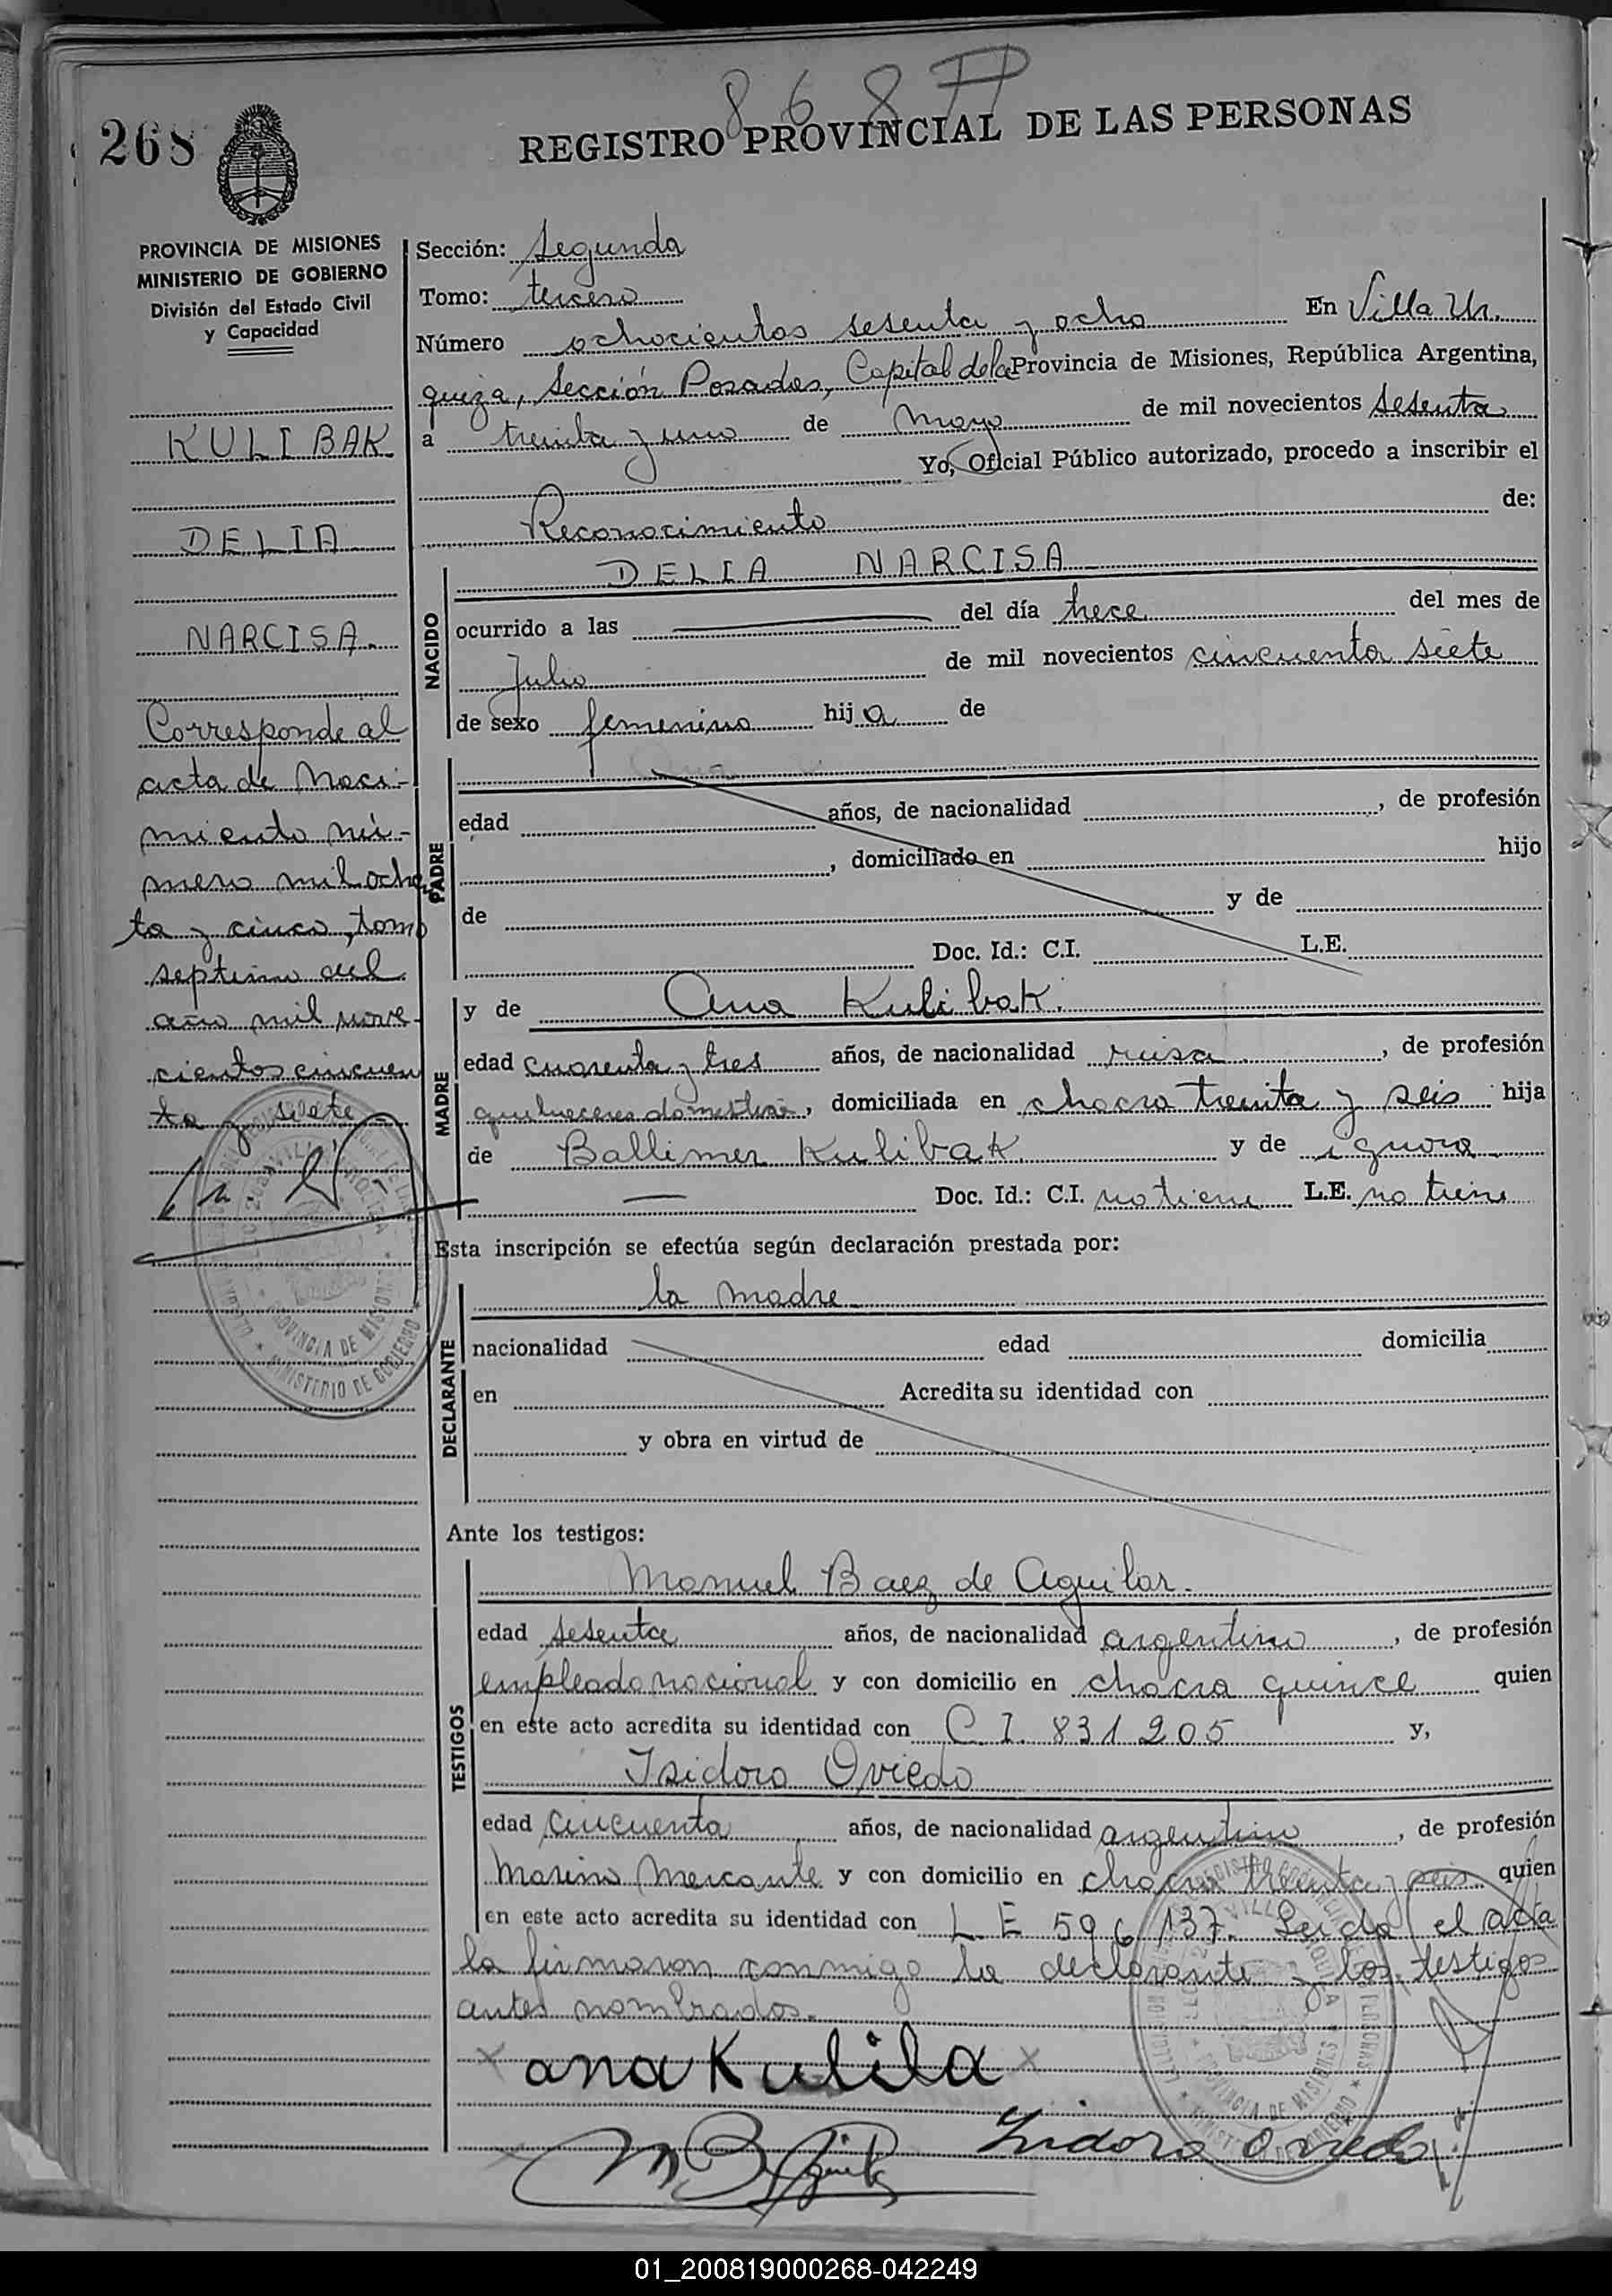 868
268
REGISTRO PROVINCIAL DE LAS PERSONAS
PROVINCIA DE MISIONES
MINISTERIO DE GOBIERNO
División del Estado Civil
y Capacidad
KULIBAK
DELIA
NARCISA.
Corresponde al
acta de Naci-
miento nú-
mero mil ochen
ta y cinco, tomo
septimo del
año mil nove-
cientos cincuen
ta y siete
Sección: Segunda
Tomo: tercero
Número ochocientos sesenta y ocho En Villa Ur.
quiza, Sección Posadas, Capital de la Provincia de Misiones, República Argentina,
a treinta y uno de Mayo de mil novecientos sesenta
Yo, Oficial Público autorizado, procedo a inscribir el
Reconocimiento de:
NACIDO
DELIA NARCISA
ocurrido a las del día trece del mes de
Julio de mil novecientos cincuenta siete
de sexo femenino hija de
PADRE
edad años, de nacionalidad , de profesión
, domiciliado en hijo
de y de
Doc. Id.: C.I. L.E.
MADRE
y de Ana Kulibak.
edad cuarenta y tres años, de nacionalidad rusa , de profesión
quehaceres domesticos, domiciliada en chacra treinta y seis hija
de Ballimer Kulibak y de ignora
Doc. Id.: C.I. no tiene L.E. no tiene
Esta inscripción se efectúa según declaración prestada por:
DECLARANTE
la madre
nacionalidad edad domicilia
en Acredita su identidad con
y obra en virtud de
Ante los testigos:
TESTIGOS
Manuel Baez de Aguilar.
edad sesenta años, de nacionalidad argentino , de profesión
empleado nacional y con domicilio en chacra quince quien
en este acto acredita su identidad con C.I. 831205 y,
Isidoro Oviedo
edad cincuenta años, de nacionalidad argentino , de profesión
Marino Mercante y con domicilio en chacra treinta y seis quien
en este acto acredita su identidad con L E 596137. Leida el acta
la firmaron conmigo la declarante y los testigos
antes nombrados.
x ana Kulila x
Isidoro Oviedo
PROVINCIA DE MISIONES
MINISTERIO DE GOBIERNO
01_200819000268-042249